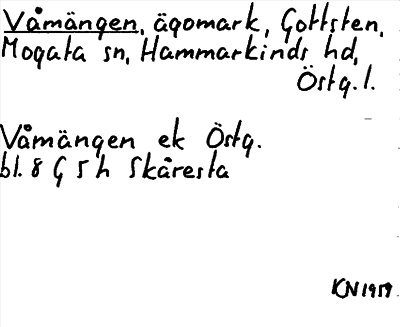 Våmängen, ägomark, Gottsten,
Mogata sn, Hammarkinds hd,
Östg. l.
Våmängen ek Östg.
bl. 8 G 5 h Skåresta
KN 1959